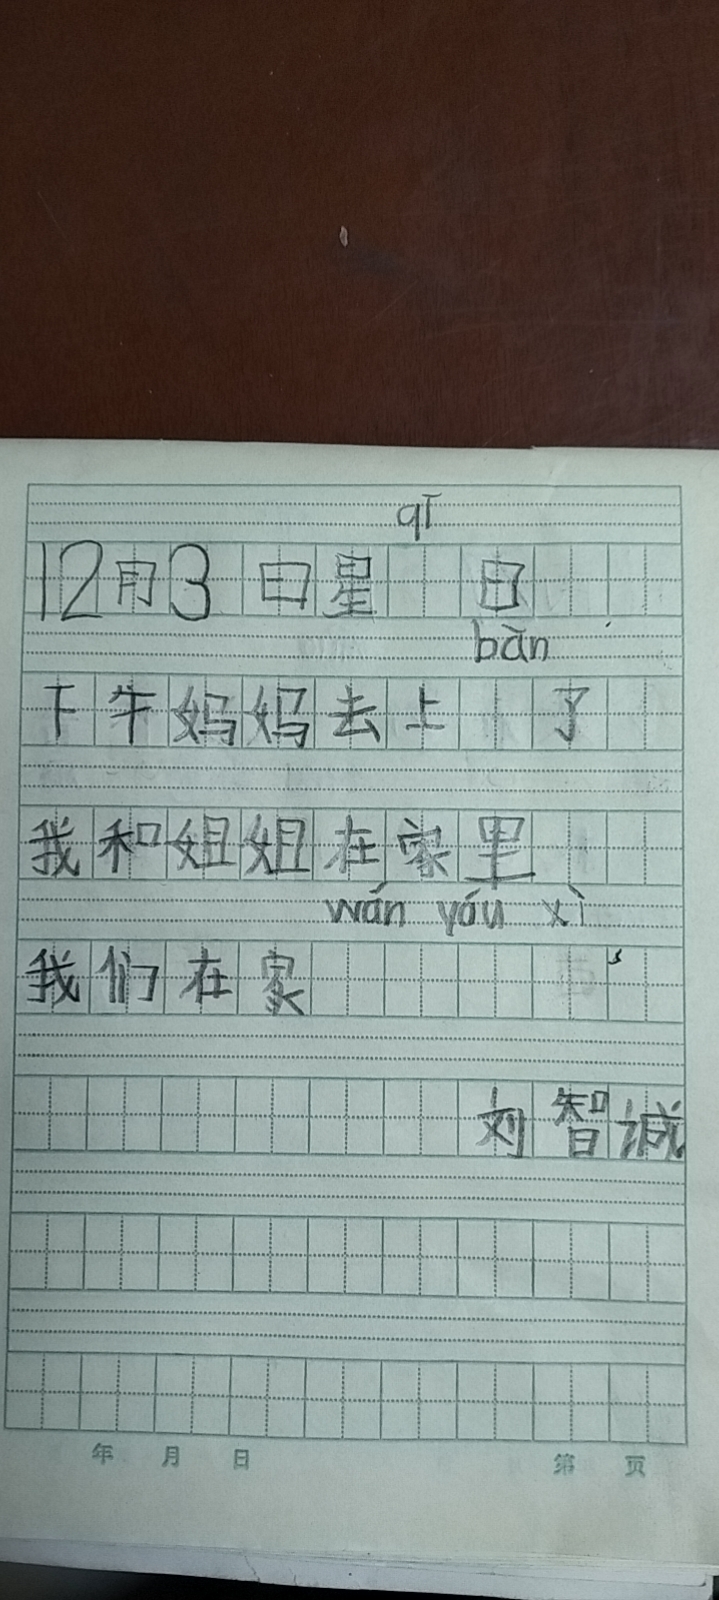 qī
12月3日星 日
bān
下午妈妈去上 了
我和姐姐在家里
wán yóu xì
我们在家
刘智诚
年 月 日 第 页